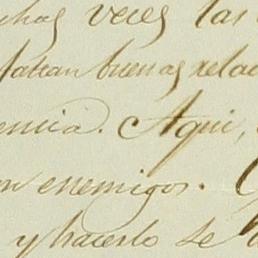 chas veces las
faltan buenas relac
encia. Aqui,
on enemigos.
y hacerlo se